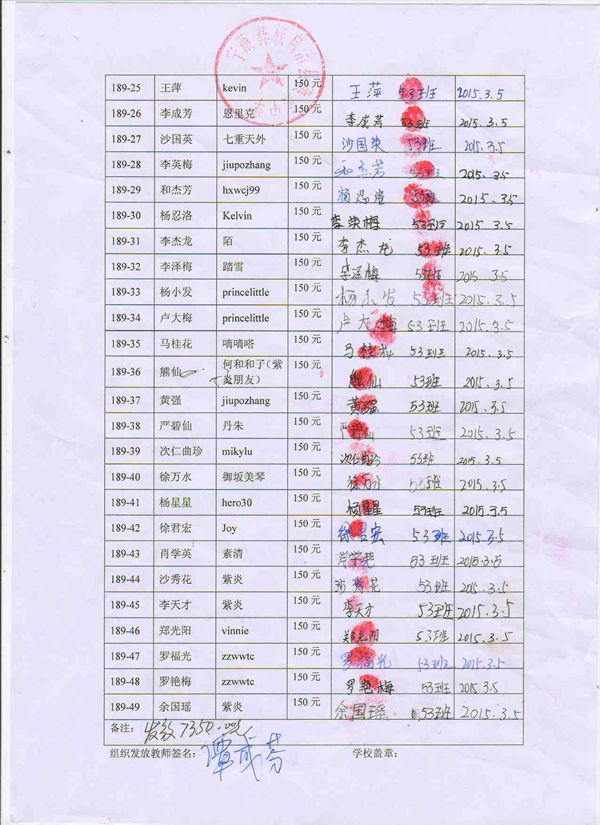 189-25 王萍 kevin 150 元 王萍 53班 2015.3.5
189-26 李成芳 恩里克 150 元 李成芳 53班 2015.3.5
189-27 沙国英 七重天外 150 元 沙国英 53班 2015.3.5
189-28 李英梅 jiupozhang 150 元 和杰芳 53班 2015.3.5
189-29 和杰芳 hxwcj99 150 元 53班 2015.3.5
189-30 杨忍洛 Kelvin 150 元 53班 2015.3.5
189-31 李杰龙 陌 150 元 李杰龙 53班 2015.3.5
189-32 李泽梅 踏雪 150 元 李泽梅 53班 2015.3.5
189-33 杨小发 princelittle 150 元 杨小发 53班 2015.3.5
189-34 卢大梅 princelittle 150 元 卢大梅 53班 2015.3.5
189-35 马桂花 嘀嘀嗒 150 元 马桂花 53班 2015.3.5
189-36 熊仙 何和和子(紫 150 元 熊仙 53班 2015.3.5
炎朋友)
189-37 黄强 jiupozhang 150 元 黄强 53班 2015.3.5
189-38 严碧仙 丹朱 150 元 严碧仙 53班 2015.3.5
189-39 次仁曲珍 mikylu 150 元 次仁曲珍 53班 2015.3.5
189-40 徐万水 御坂美琴 150 元 徐万水 53班 2015.3.5
189-41 杨星星 hero30 150 元 杨星星 53班 2015.3.5
189-42 徐君宏 Joy 150 元 徐君宏 53班 2015.3.5
189-43 肖学英 素清 150 元 肖学英 53班 2015.3.5
189-44 沙秀花 紫炎 150 元 沙秀花 53班 2015.3.5
189-45 李天才 紫炎 150 元 李天才 53班 2015.3.5
189-46 郑光阳 vinnie 150 元 郑光阳 53班 2015.3.5
189-47 罗福光 zzwwtc 150 元 罗福光 53班 2015.3.5
189-48 罗艳梅 zzwwtc 150 元 罗艳梅 53班 2015.3.5
189-49 余国瑶 紫炎 150 元 余国瑶 53班 2015.3.5
备注: 发放7350.元
组织发放教师签名: 谭成芬 学校盖章: